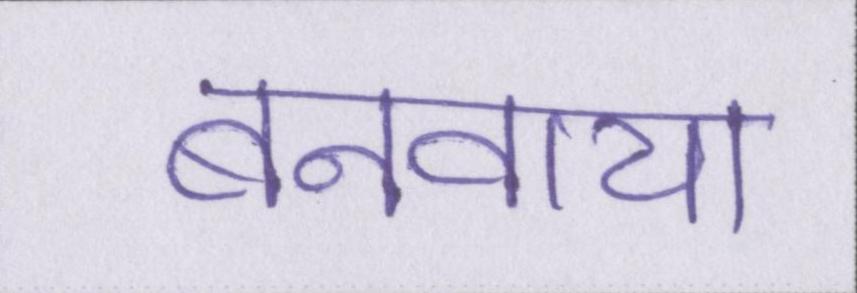 बनवाया